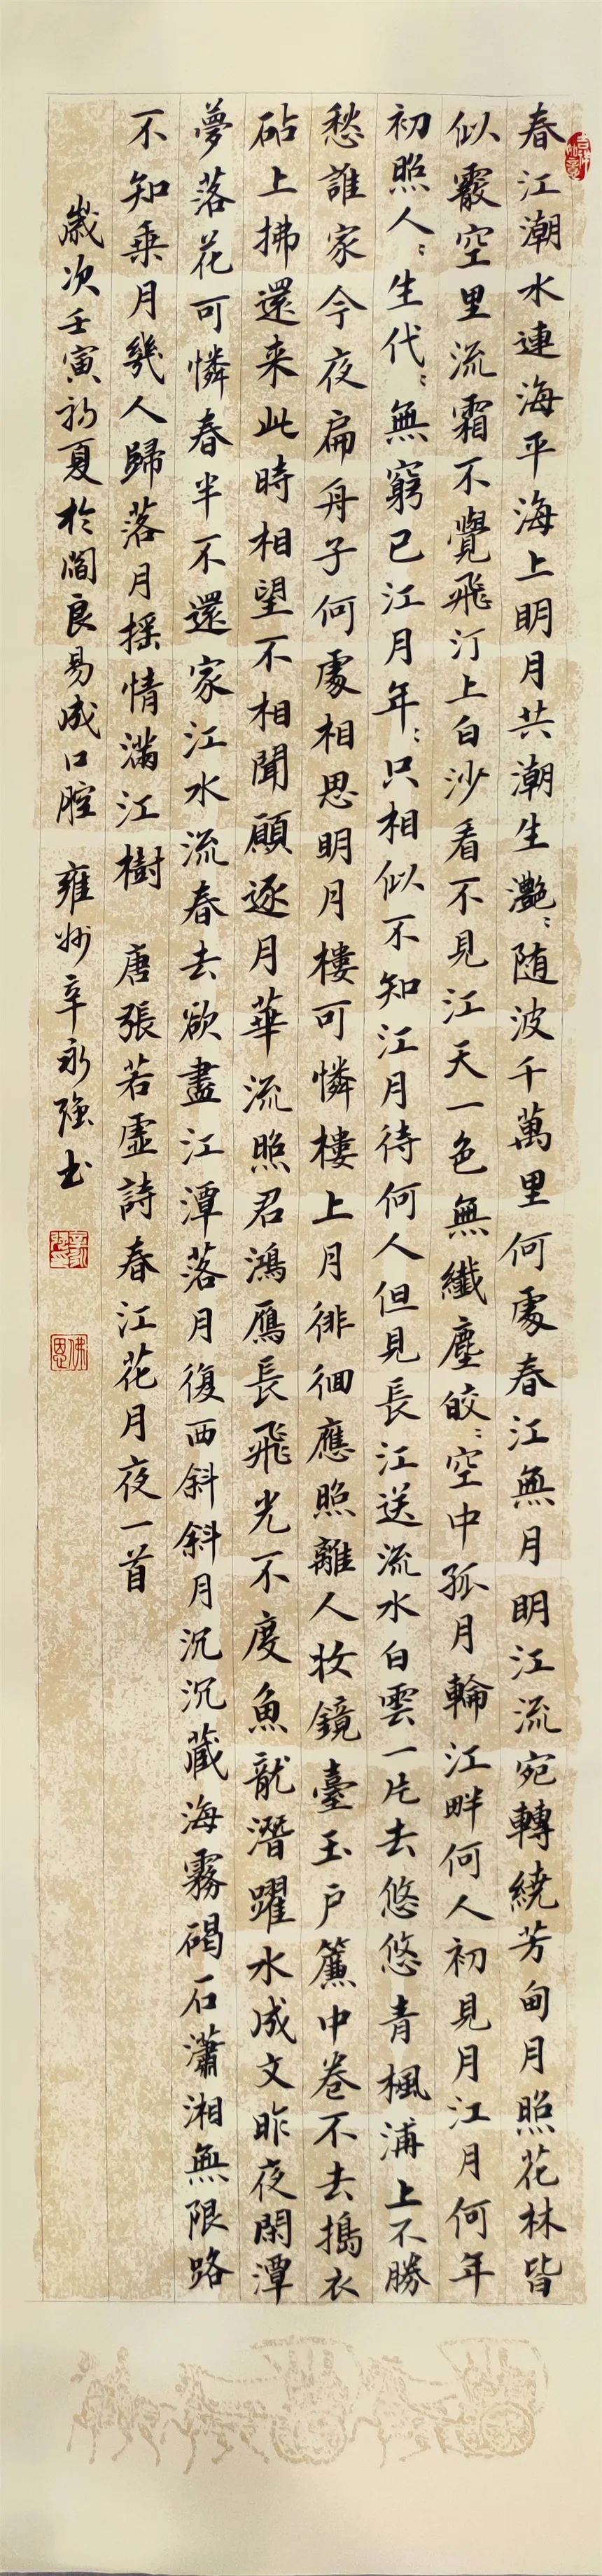 春江潮水連海平海上明月共潮生灧〻随波千萬里何處春江無月明江流宛轉繞芳甸月照花林皆
似霰空里流霜不覺飛汀上白沙看不見江天一色無纖塵皎〻空中孤月輪江畔何人初見月江月何年
初照人〻生代〻無窮已江月年〻只相似不知江月待何人但見長江送流水白雲一片去悠悠青楓浦上不勝
愁誰家今夜扁舟子何處相思明月樓可憐樓上月徘徊應照離人妝鏡臺玉户簾中卷不去搗衣
砧上拂還来此時相望不相聞願逐月華流照君鴻鴈長飛光不度魚龍潛躍水成文昨夜閑潭
夢落花可憐春半不還家江水流春去欲盡江潭落月復西斜斜月沉沉藏海霧碣石瀟湘無限路
不知乗月幾人歸落月摇情滿江樹 唐張若虛詩春江花月夜一首
歲次壬寅初夏於閻良易成口腔 雍州辛永强书
吉祥如意
佛恩